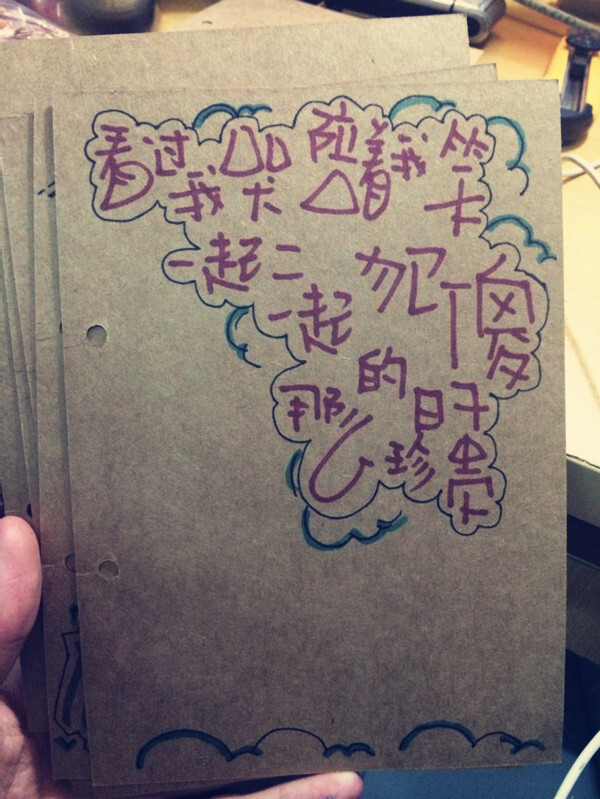 看过我哭 陪着我笑
一起二
一起犯傻
的时
那么珍贵